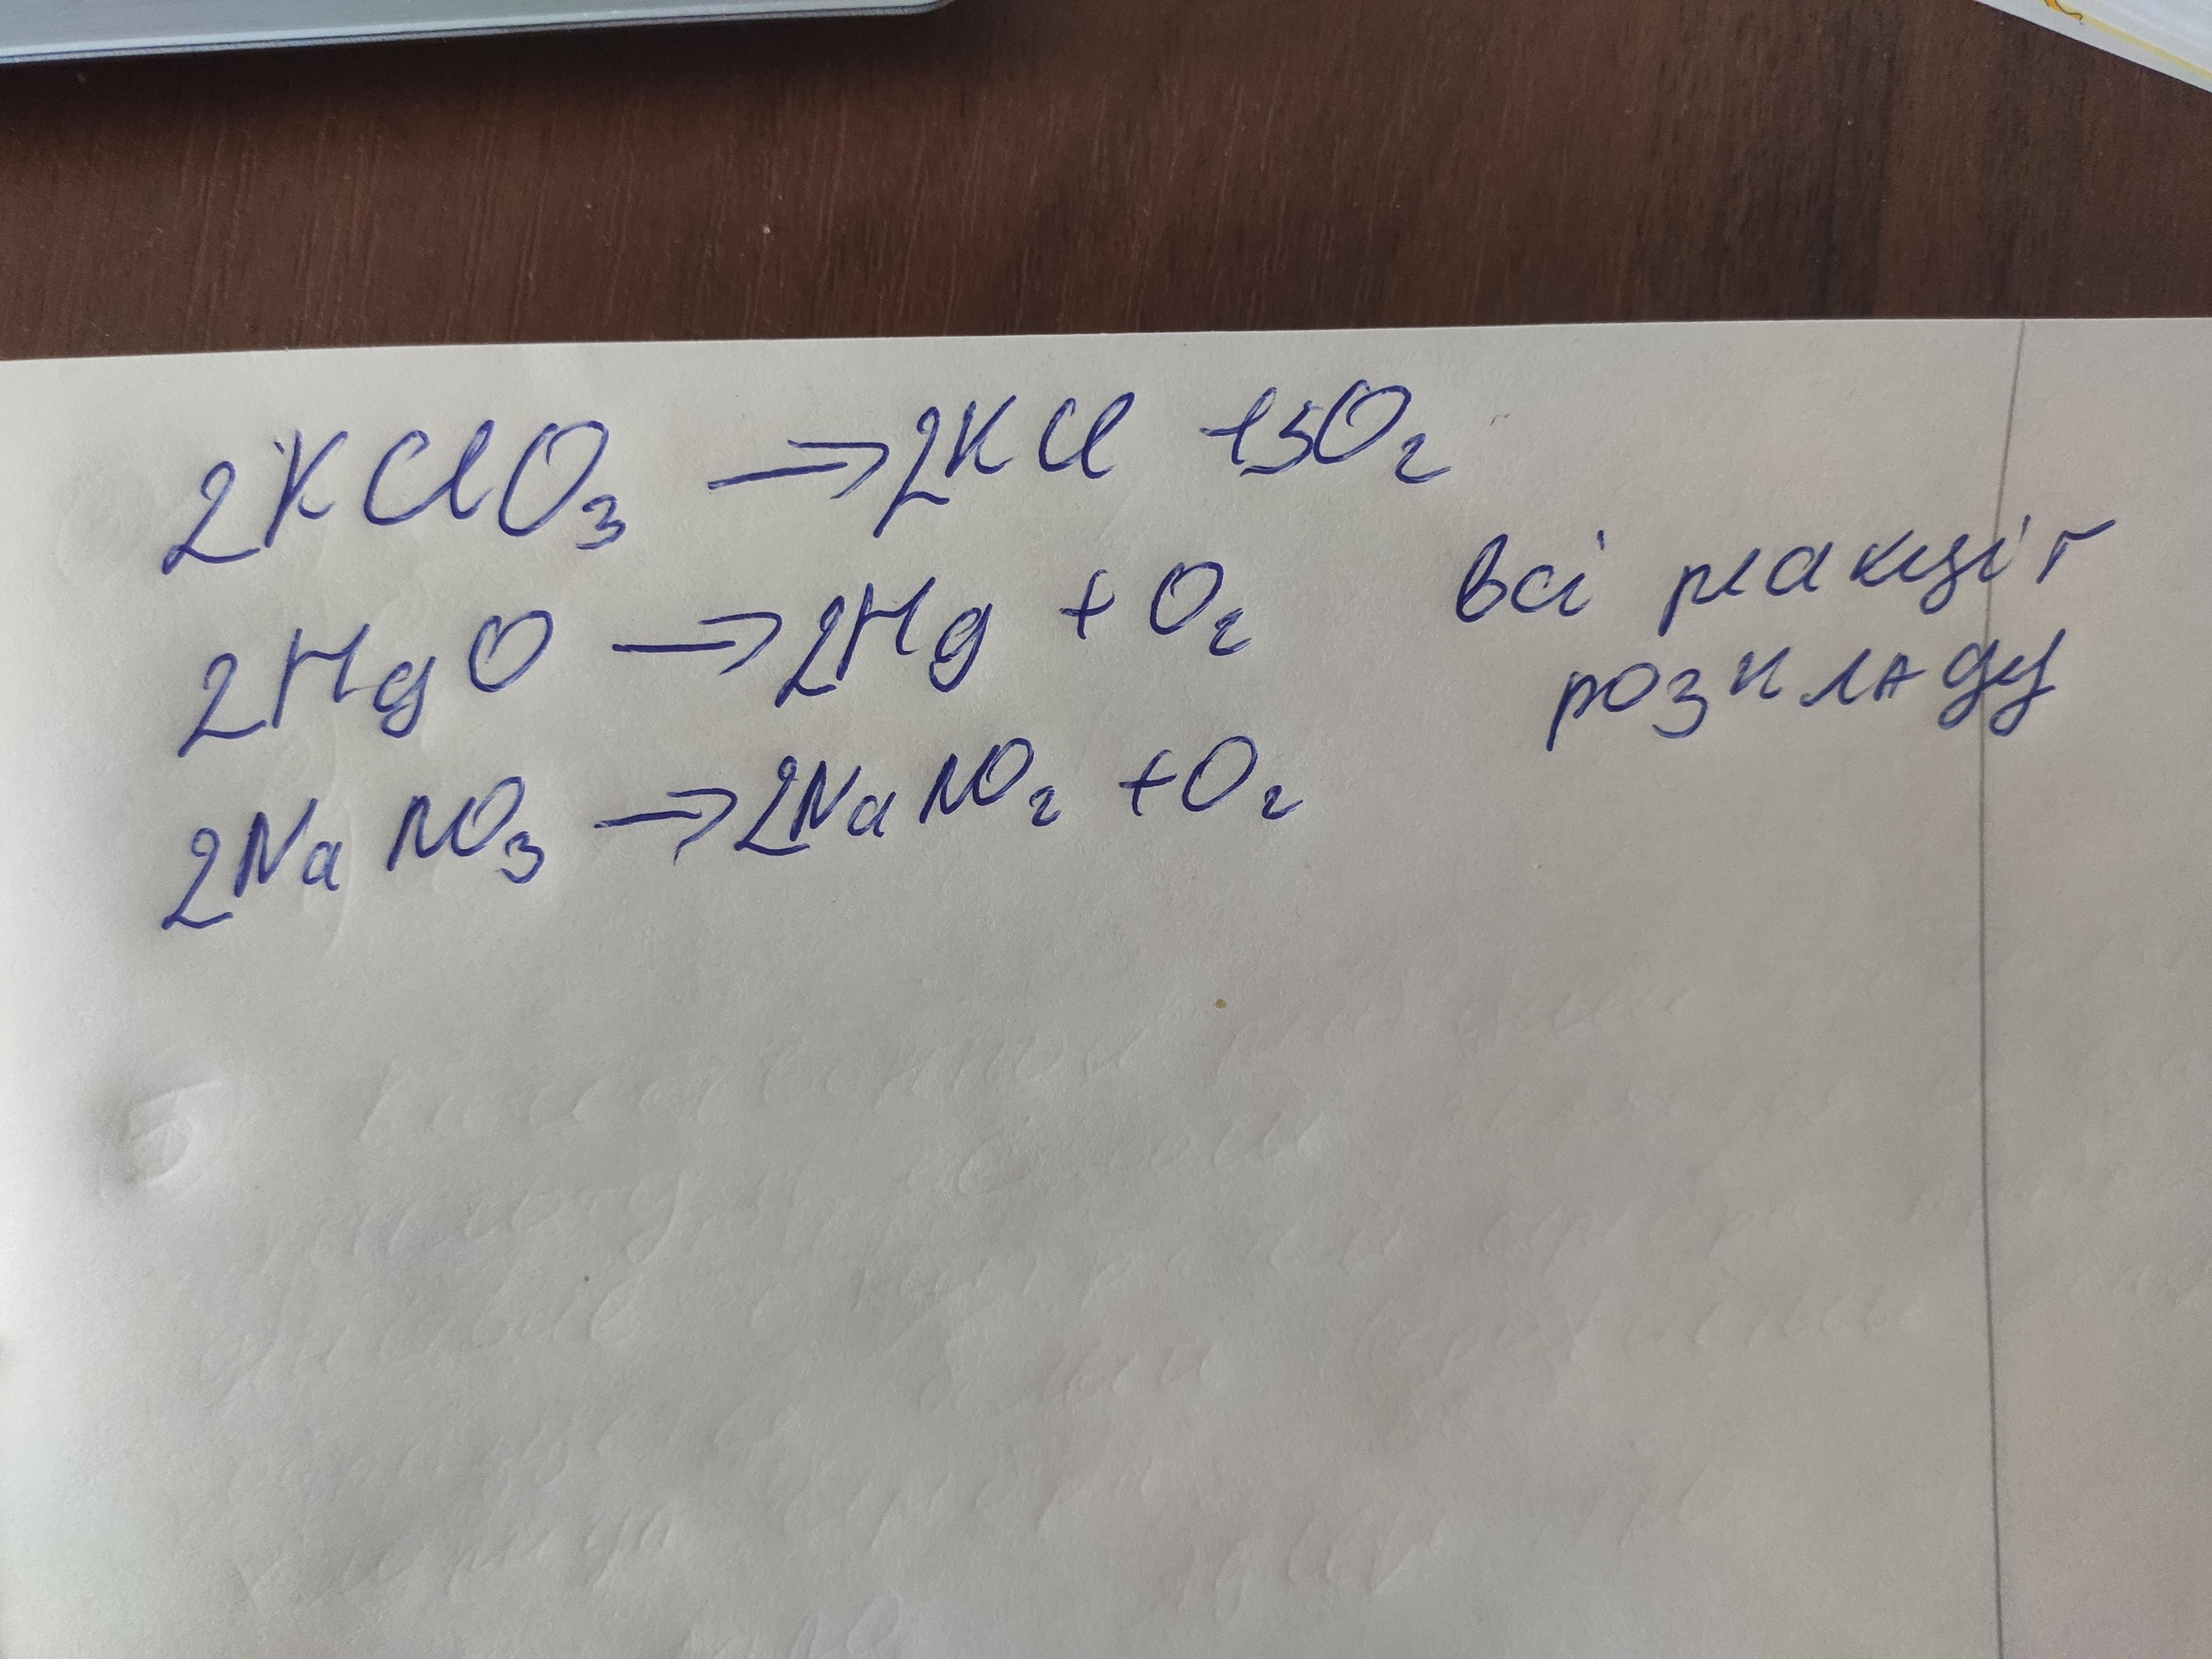 2KClO₃ → 2KCl + 3O₂
2HgO → 2Hg + O₂
2NaNO₃ → 2NaNO₂ + O₂
всі реакції
розкладу